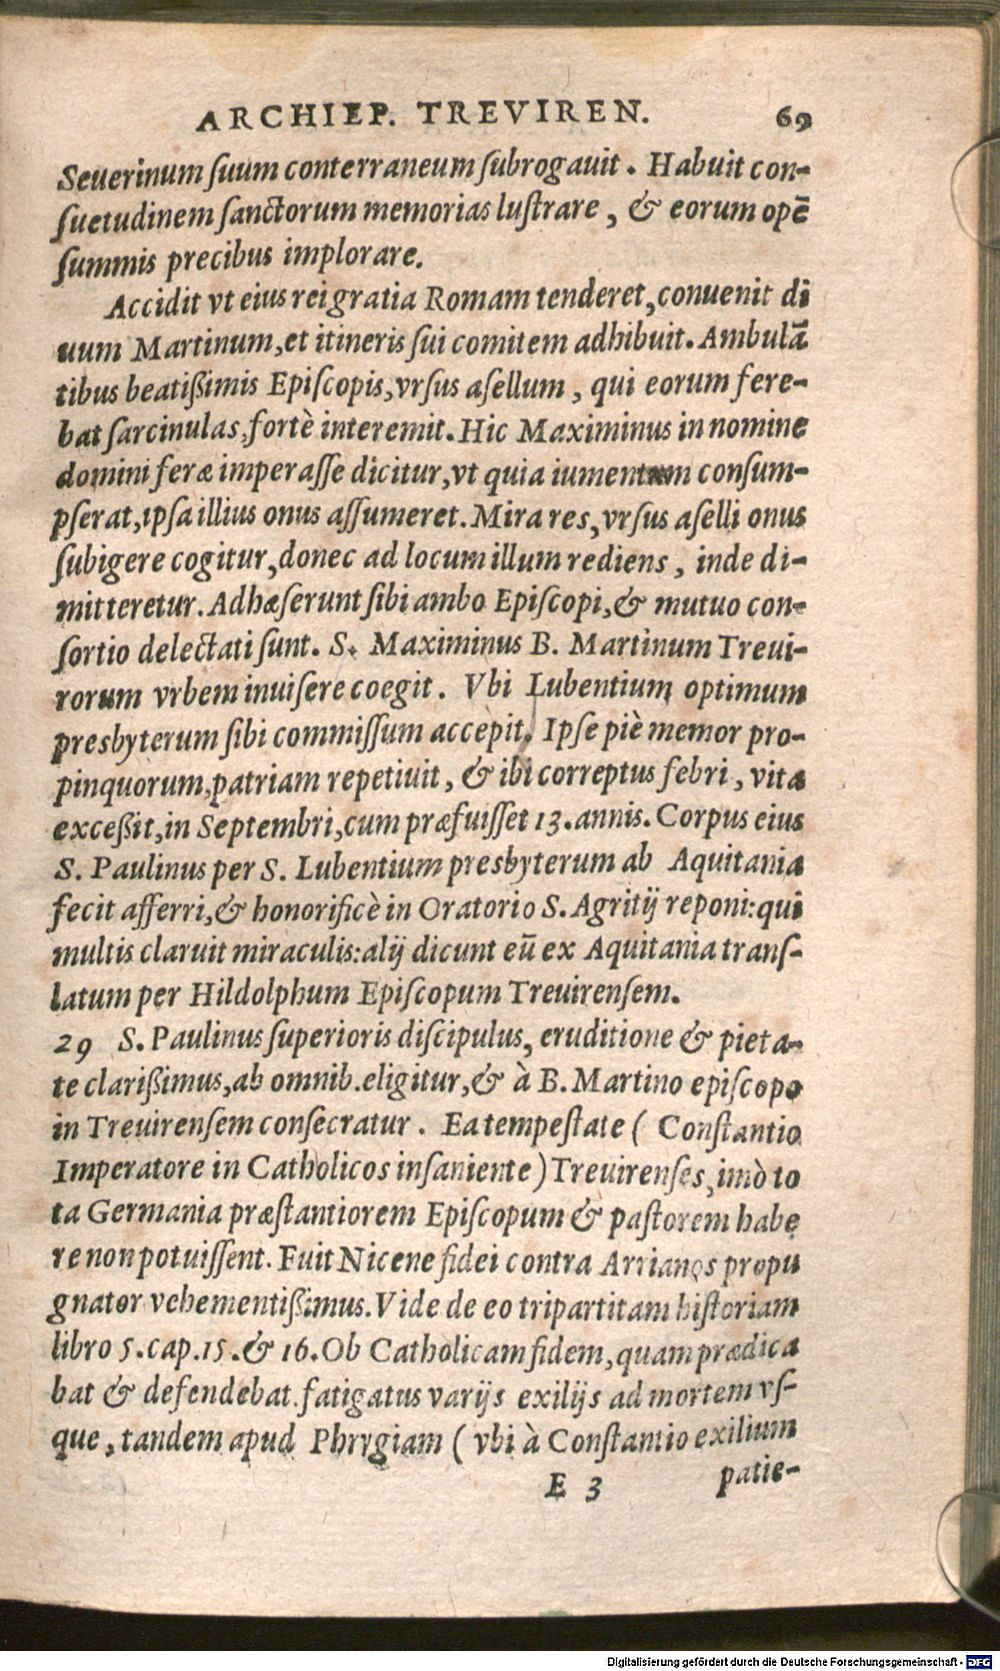 ARCHIEP. TREVIREN. 69
Seuerinum ſuum conterraneum ſubrogauit. Habuit con-
ſuetudinem ſanctorum memorias luſtrare, & eorum opē
ſummis precibus implorare.
Accidit vt eius rei gratia Romam tenderet, conuenit di
uum Martinum, et itineris ſui comitem adhibuit. Ambulā
tibus beatißimis Epiſcopis, vrſus aſellum, qui eorum fere-
bat ſarcinulas, fortè interemit. Hic Maximinus in nomine
domini feræ imperaſſe dicitur, vt quia iumentum conſum-
pſerat, ipſa illius onus aſſumeret. Mira res, vrſus aſelli onus
ſubigere cogitur, donec ad locum illum rediens, inde di-
mitteretur. Adhæſerunt ſibi ambo Epiſcopi, & mutuo con-
ſortio delectati ſunt. S. Maximinus B. Martinum Treui-
rorum vrbem inuiſere coegit. Vbi Lubentium optimum
presbyterum ſibi commiſſum accèpit. Ipſe piè memor pro-
pinquorum, patriam repetiuit, & ibi correptus febri, vita
exceßit, in Septembri, cum præfuiſſet 13. annis. Corpus eius
S. Paulinus per S. Lubentium presbyterum ab Aquitania
fecit afferri, & honorificè in Oratorio S. Agritij reponi: qui
multis claruit miraculis: alij dicunt eū ex Aquitania tranſ-
latum per Hildolphum Epiſcopum Treuirenſem.
29 S. Paulinus ſuperioris diſcipulus, eruditione & pieta-
te clarißimus, ab omnib. eligitur, & à B. Martino epiſcopo
in Treuirenſem conſecratur. Ea tempeſtate ( Conſtantio
Imperatore in Catholicos inſaniente ) Treuirenſes, imò to
ta Germania præſtantiorem Epiſcopum & paſtorem habe
re non potuiſſent. Fuit Nicene fidei contra Arrianos propu
gnator vehementißimus. Vide de eo tripartitam hiſtoriam
libro 5. cap. 15. & 16. Ob Catholicam fidem, quam prædica
bat & defendebat. fatigatus varijs exilijs ad mortem vſ-
que, tandem apud Phrygiam ( vbi à Conſtantio exilium
E 3 patie-
Digitalisierung gefördert durch die Deutsche Forschungsgemeinschaft - DFG